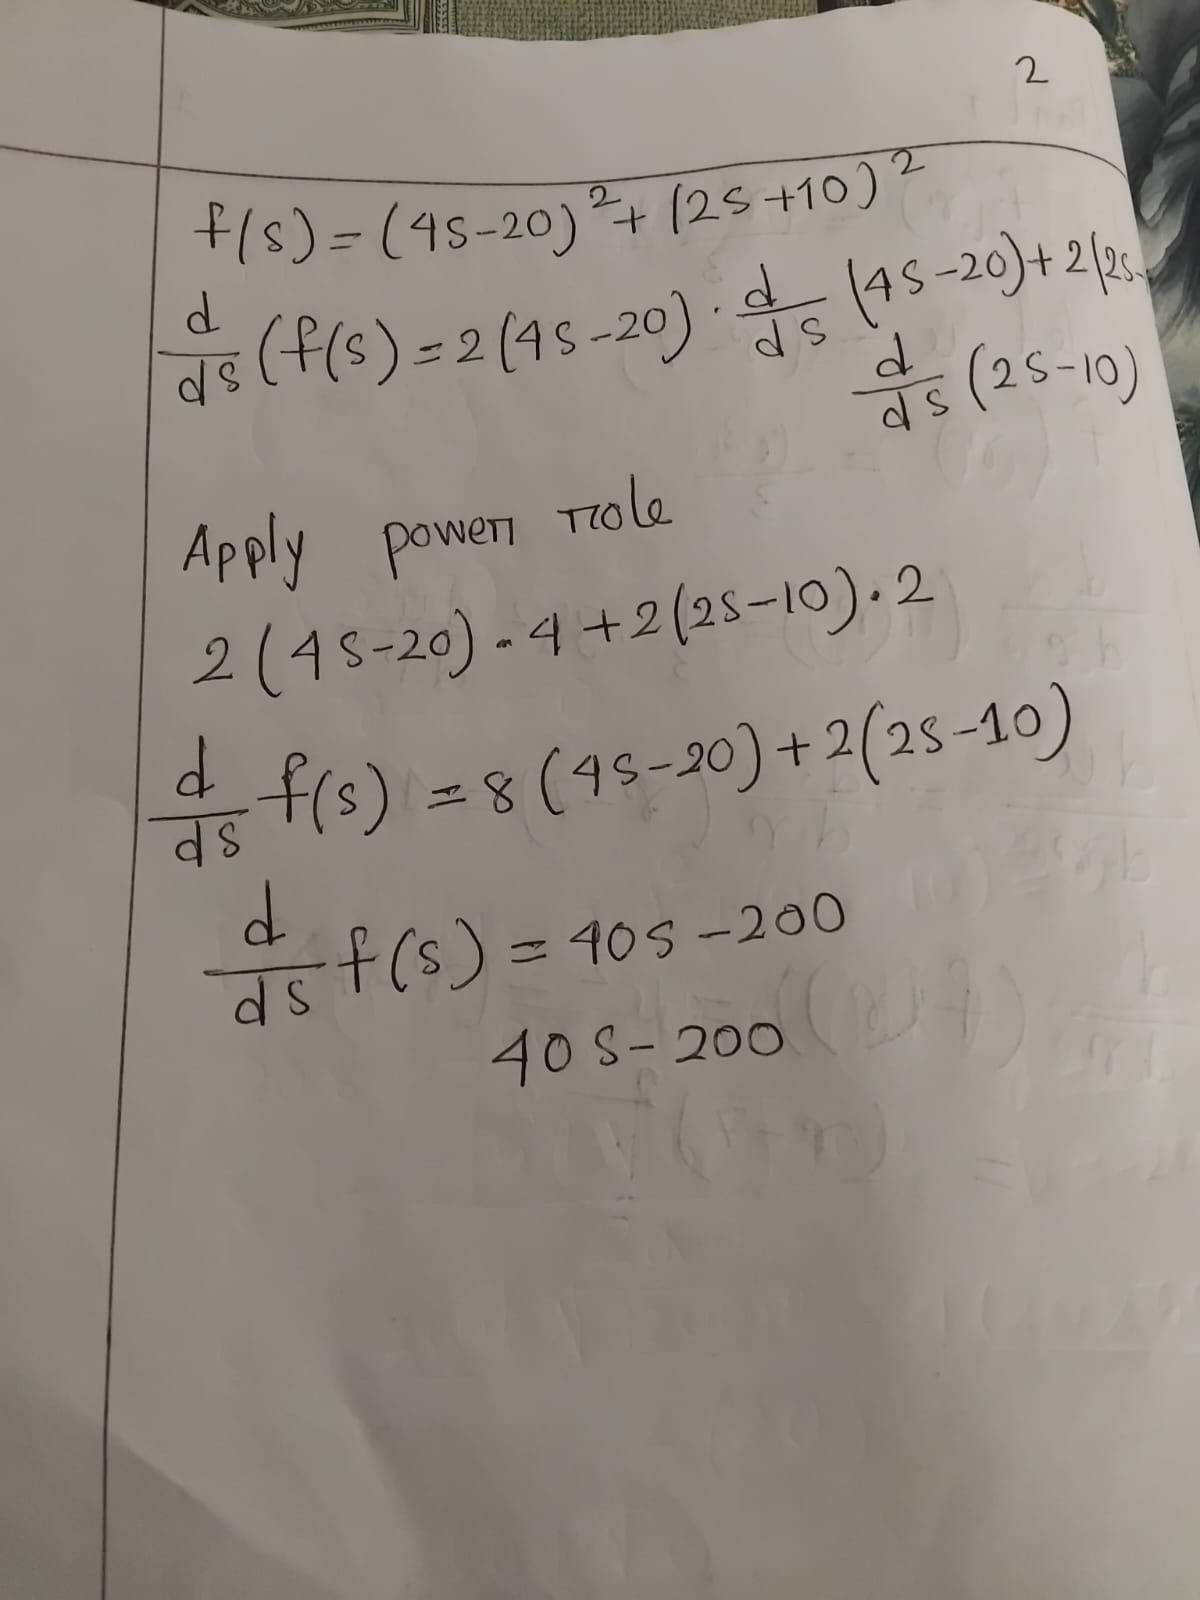 2
f(s) = (4s-20)² + (2s+10)²
d/ds (f(s) = 2(4s-20) · d/ds (4s-20) + 2(2s-
d/ds (2s-10)
Apply power role
2(4s-20) · 4 + 2(2s-10) · 2
d/ds f(s) = 8(4s-20) + 2(2s-10)
d/ds f(s) = 40s - 200
40s - 200